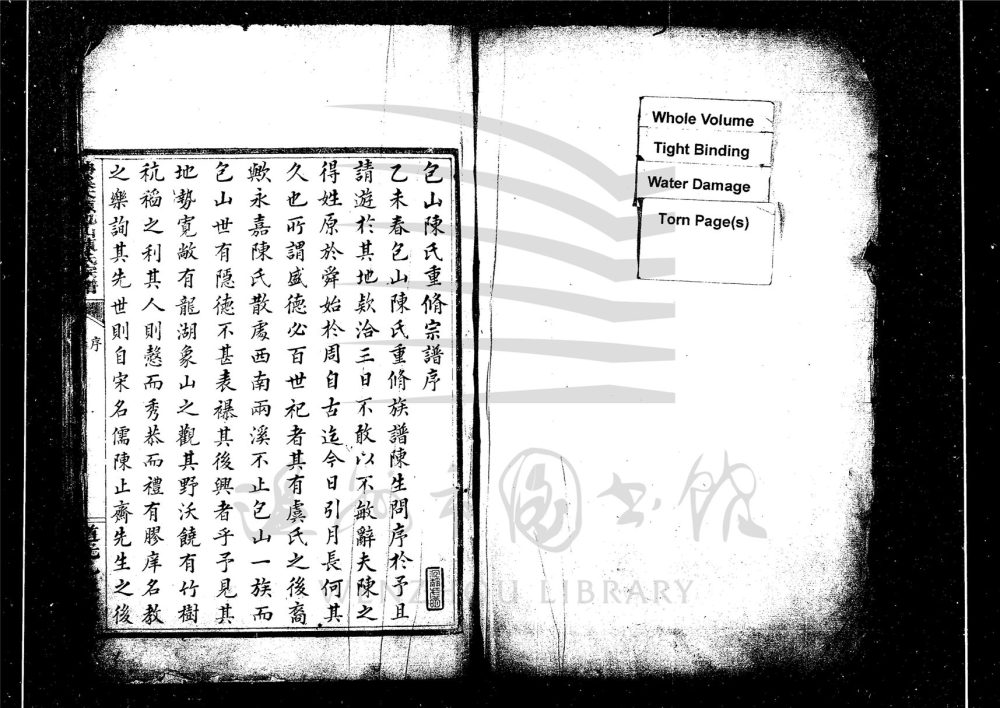 包山陳氏重脩宗譜序
乙未春包山陳氏重脩族譜陳生問序於予且
請遊於其地欵洽三日不敢以不敏辭夫陳之
得姓原於舜始於周自古迄今日引月長何其
久也所謂盛德必百世祀者其有虞氏之後裔
歟永嘉陳氏散處西南兩溪不止包山一族而
包山世有隱德不甚表襮其後興者乎予見其
地勢寬敞有龍湖象山之觀其野沃饒有竹樹
秔稻之利其人則愨而秀恭而禮有膠庠名教
之樂詢其先世則自宋名儒陳止齋先生之後
序
Whole Volume
Tight Binding
Water Damage
Torn Page(s)
溫州市圖書館
WENZHOU LIBRARY